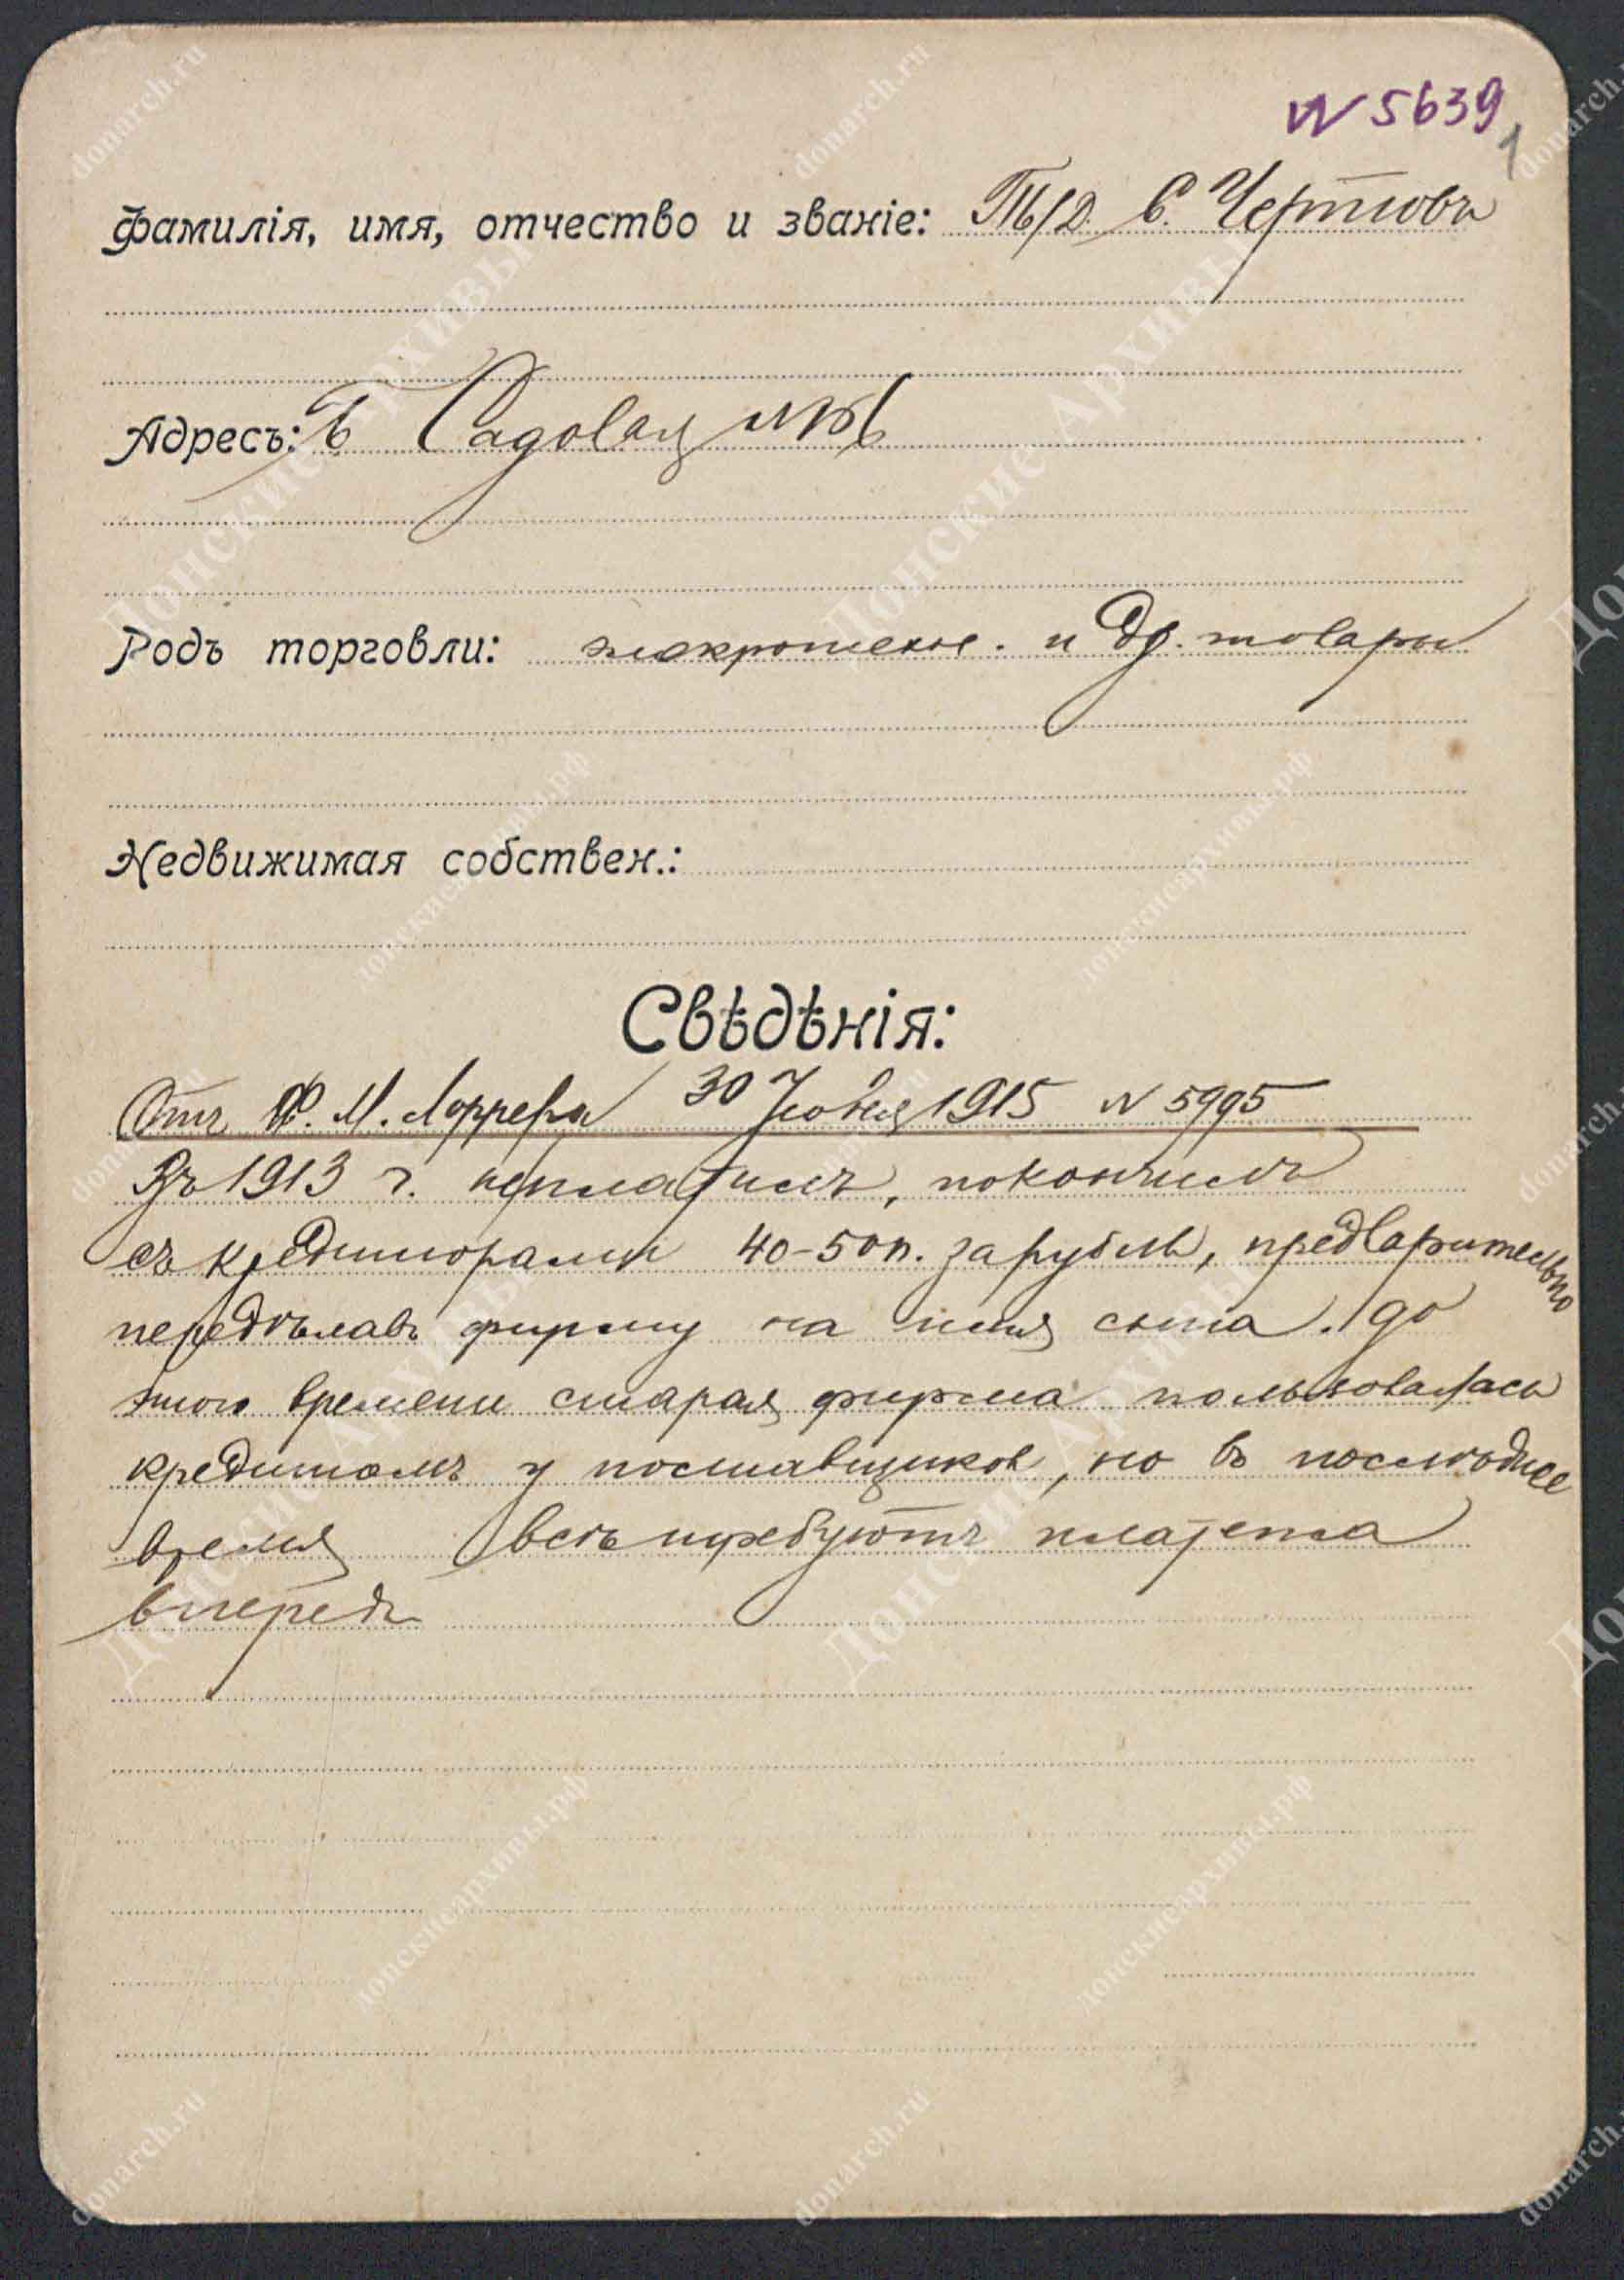 N 5639
1
Фамилія, имя, отчество и званіе: Т/Д. С. Чертовъ
Адресъ: Б Садовая
Родъ торговли: электротехн. и др. товары
Недвижимая собствен.:
Свѣдѣнія:
Отъ Ф. М. Лоррера 30 Іюня 1915 N 5995
Въ 1913 г. неплатилъ, покончилъ
съ кредиторами 40-50 к. за рубль, предварительно
передѣлавъ фирму на имя сына. до
этого времени старая фирма пользовалась
кредитомъ у поставщиков, но въ послѣднее
время всѣ требуютъ платежа
впередъ